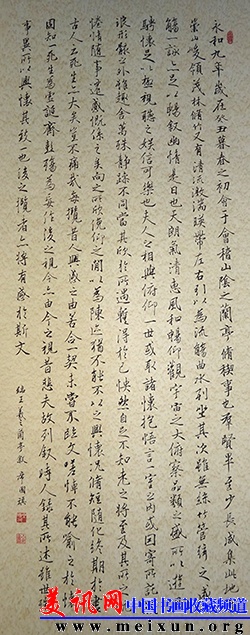 永和九年歲在癸丑暮春之初會于會稽山陰之蘭亭脩禊事也群賢畢至少長咸集此地有
崇山峻領茂林脩竹又有清流激湍暎帶左右引以為流觴曲水列坐其次雖無絲竹管絃之盛一
觴一詠亦足以暢敘幽情是日也天朗氣清惠風和暢仰觀宇宙之大俯察品類之盛所以遊目
騁懷足以極視聽之娛信可樂也夫人之相與俯仰一世或取諸懷抱悟言一室之內或因寄所託放
浪形骸之外雖趣舍萬殊靜躁不同當其欣於所遇暫得於己怏然自足不知老之將至及其所之既
惓情隨事遷感慨係之矣向之所欣俛仰之間以為陳迹猶不能不以之興懷況脩短隨化終期於盡
古人云死生亦大矣豈不痛哉每攬昔人興感之由若合一契未嘗不臨文嗟悼不能喻之於懷
固知一死生為虛誕齊彭殤為妄作後之視今亦由今之視昔悲夫故列敘時人錄其所述雖世殊
事異所以興懷其致一也後之攬者亦將有感於斯文
臨王羲之蘭亭敘
美讯网 中国书画收藏频道
www.meixun.org